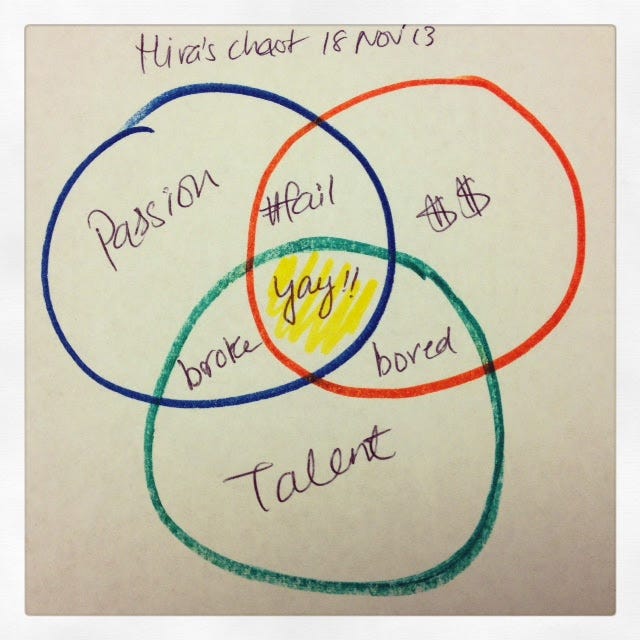 Mira's chart 18 Nov'13
Passion
#fail
$$
yay!!
broke
bored
Talent